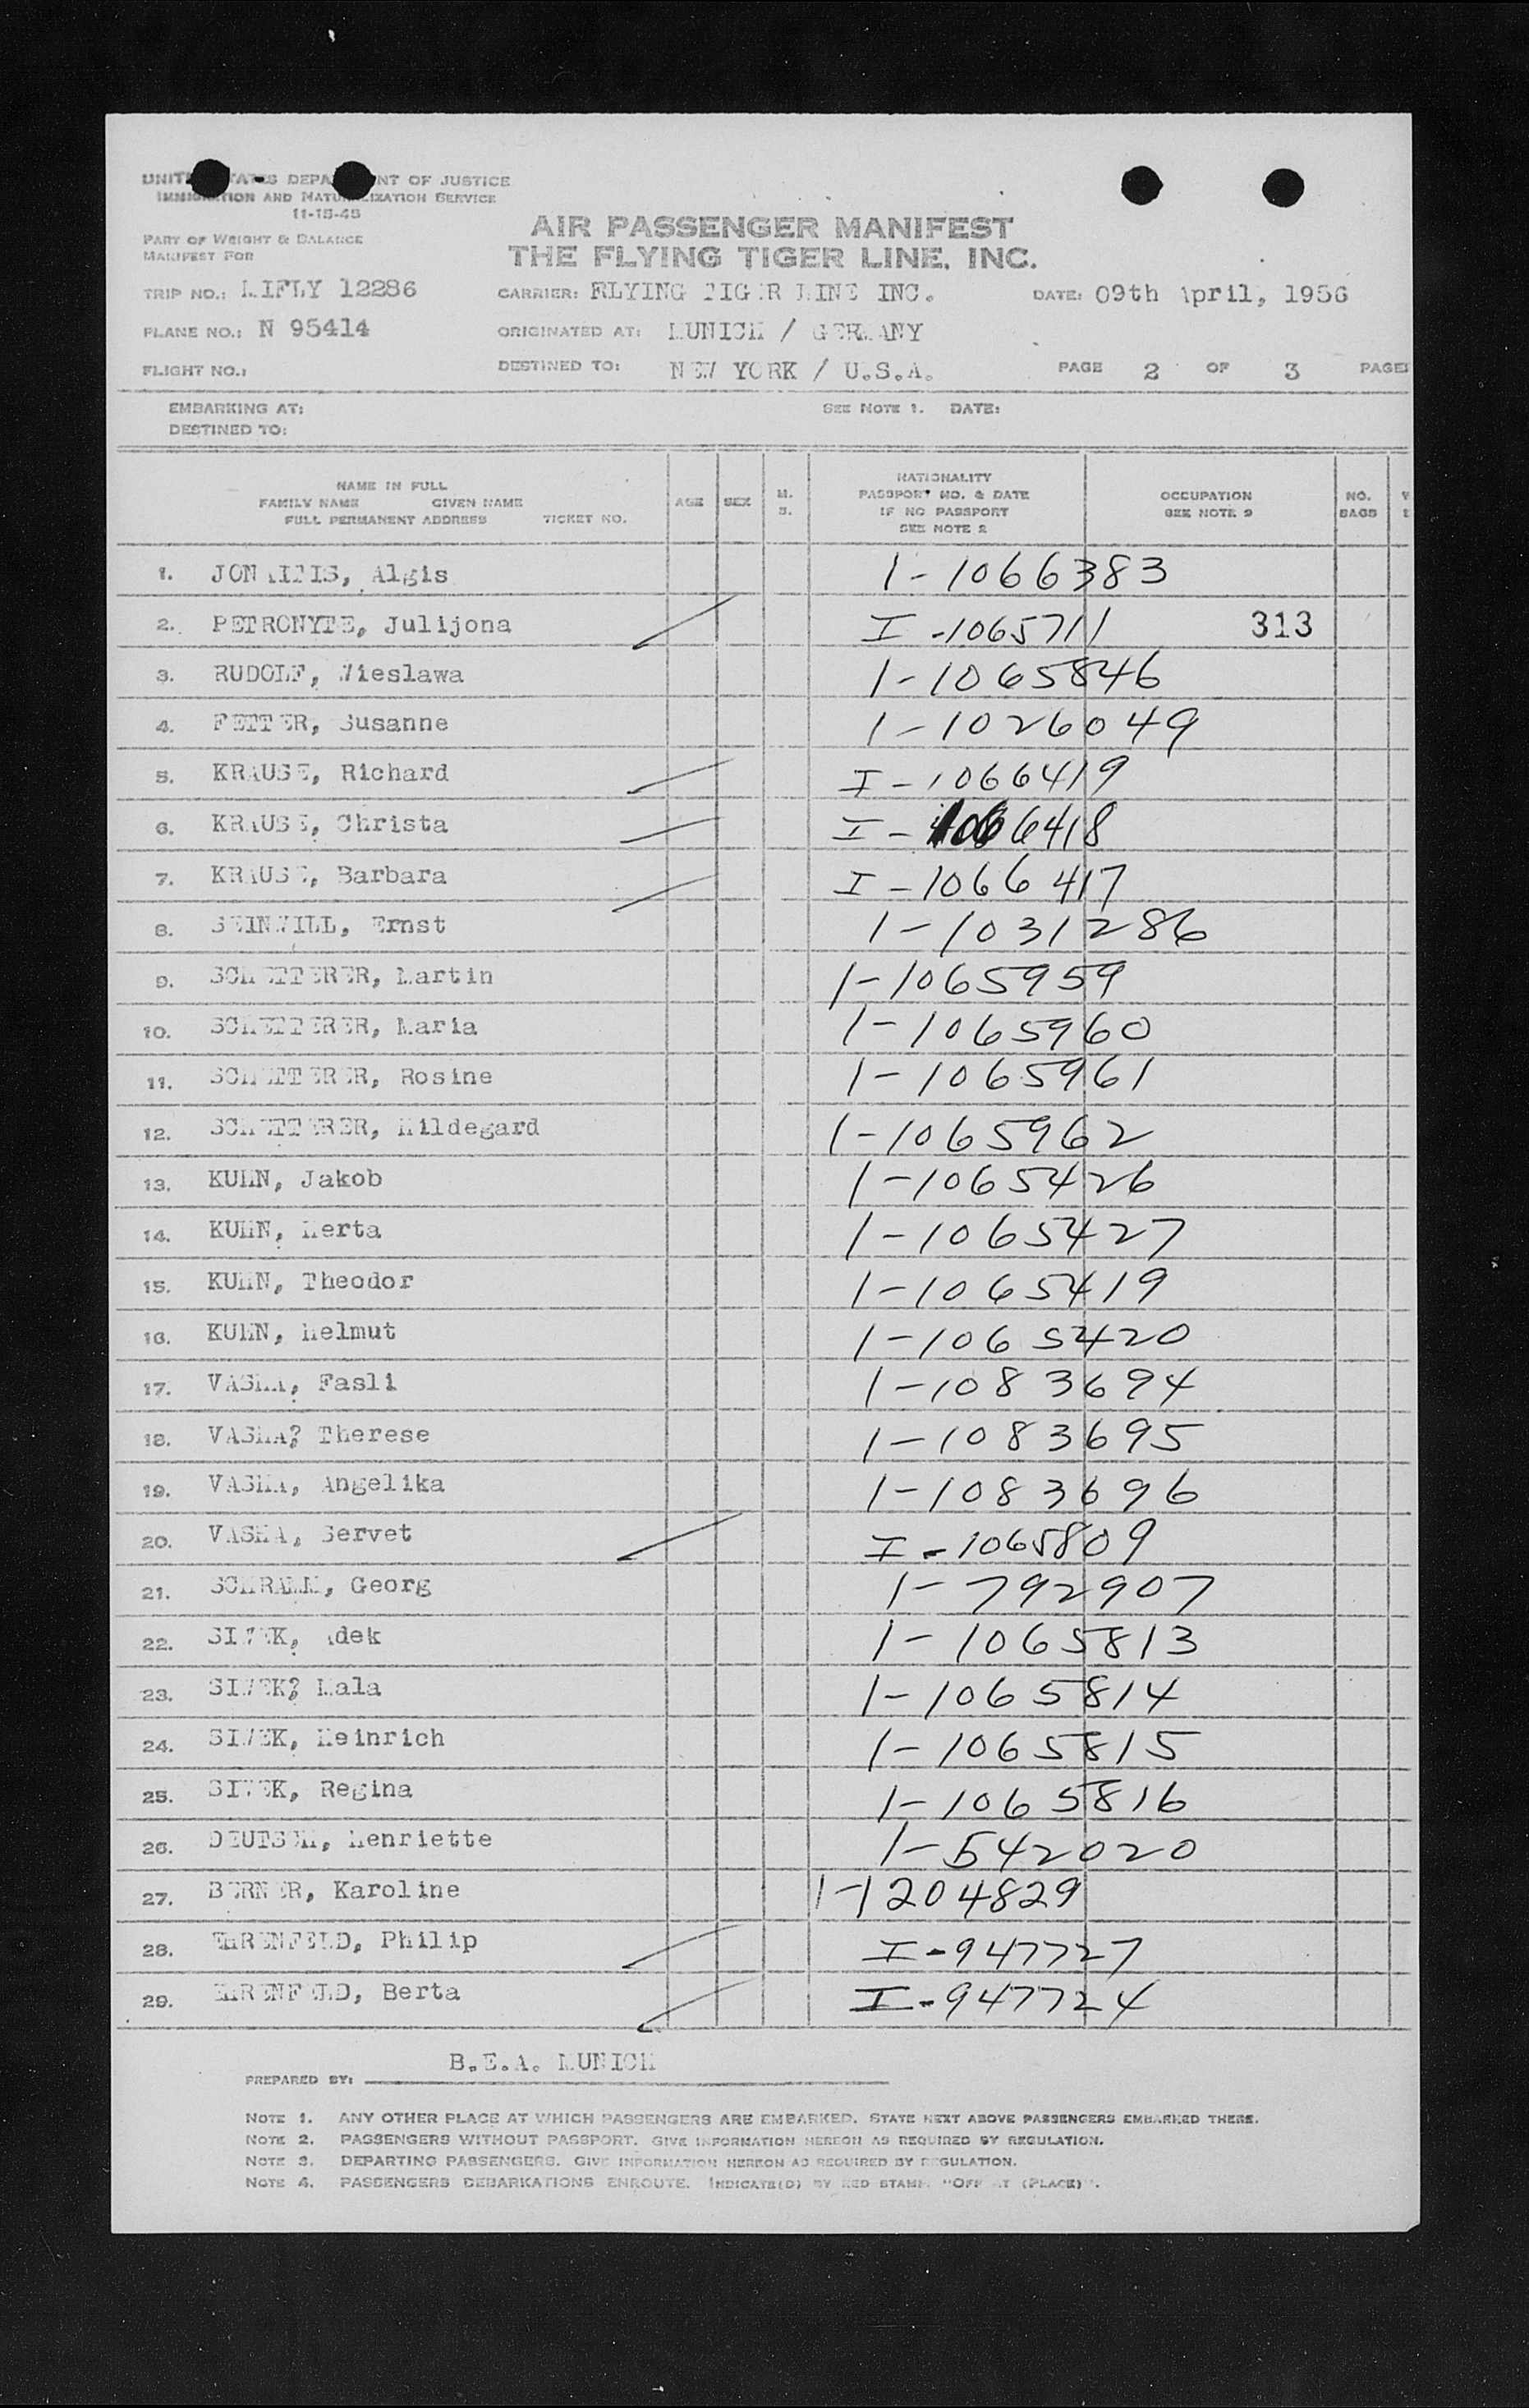 UNITED STATES DEPARTMENT OF JUSTICE
IMMIGRATION AND NATURALIZATION SERVICE
11-15-48
AIR PASSENGER MANIFEST
PART OF WEIGHT & BALANCE
MANIFEST FOR
THE FLYING TIGER LINE, INC.
TRIP NO.: LIFLY 12286 CARRIER: FLYING TIGER LINE INC. DATE: 09th April, 1956
PLANE NO.: N 95414 ORIGINATED AT: MUNICH / GERMANY
FLIGHT NO.: DESTINED TO: NEW YORK / U.S.A. PAGE 2 OF 3 PAGES
EMBARKING AT: SEE NOTE 1. DATE:
DESTINED TO:
NAME IN FULL
FAMILY NAME GIVEN NAME
FULL PERMANENT ADDRESS TICKET NO. AGE SEX M. S.
NATIONALITY
PASSPORT NO. & DATE
IF NO PASSPORT
SEE NOTE 2
OCCUPATION
SEE NOTE 2
NO.
BAGS
1. JONAITIS, Algis 1-1066383
2. PETRONYTE, Julijona I-1065711 313
3. RUDOLF, Wieslawa 1-1065846
4. FETTER, Susanne 1-1026049
5. KRAUSE, Richard I-1066419
6. KRAUSE, Christa I-1066418
7. KRAUSE, Barbara I-1066417
8. STEINWILL, Ernst 1-1031286
9. SCHETTERER, Martin 1-1065959
10. SCHETTERER, Maria 1-1065960
11. SCHETTERER, Rosine 1-1065961
12. SCHETTERER, Hildegard 1-1065962
13. KUHN, Jakob 1-1065426
14. KUHN, Herta 1-1065427
15. KUHN, Theodor 1-1065419
16. KUHN, Helmut 1-1065420
17. VASHA, Fasli 1-1083694
18. VASHA? Therese 1-1083695
19. VASHA, Angelika 1-1083696
20. VASHA, Servet I-1065809
21. SCHRAMM, Georg 1-792907
22. SIWEK, Adek 1-1065813
23. SIWEK? Mala 1-1065814
24. SIWEK, Heinrich 1-1065815
25. SIWEK, Regina 1-1065816
26. DEUTSCH, Henriette 1-542020
27. BERNER, Karoline 1-1204829
28. EHRENFELD, Philip I-947727
29. EHRENFELD, Berta I-947724
PREPARED BY: B.E.A. MUNICH
NOTE 1. ANY OTHER PLACE AT WHICH PASSENGERS ARE EMBARKED. STATE NEXT ABOVE PASSENGERS EMBARKED THERE.
NOTE 2. PASSENGERS WITHOUT PASSPORT. GIVE INFORMATION HEREON AS REQUIRED BY REGULATION.
NOTE 3. DEPARTING PASSENGERS. GIVE INFORMATION HEREON AS REQUIRED BY REGULATION.
NOTE 4. PASSENGERS DEBARKATIONS ENROUTE. INDICATE(D) BY RED STAMP "OFF AT (PLACE)".